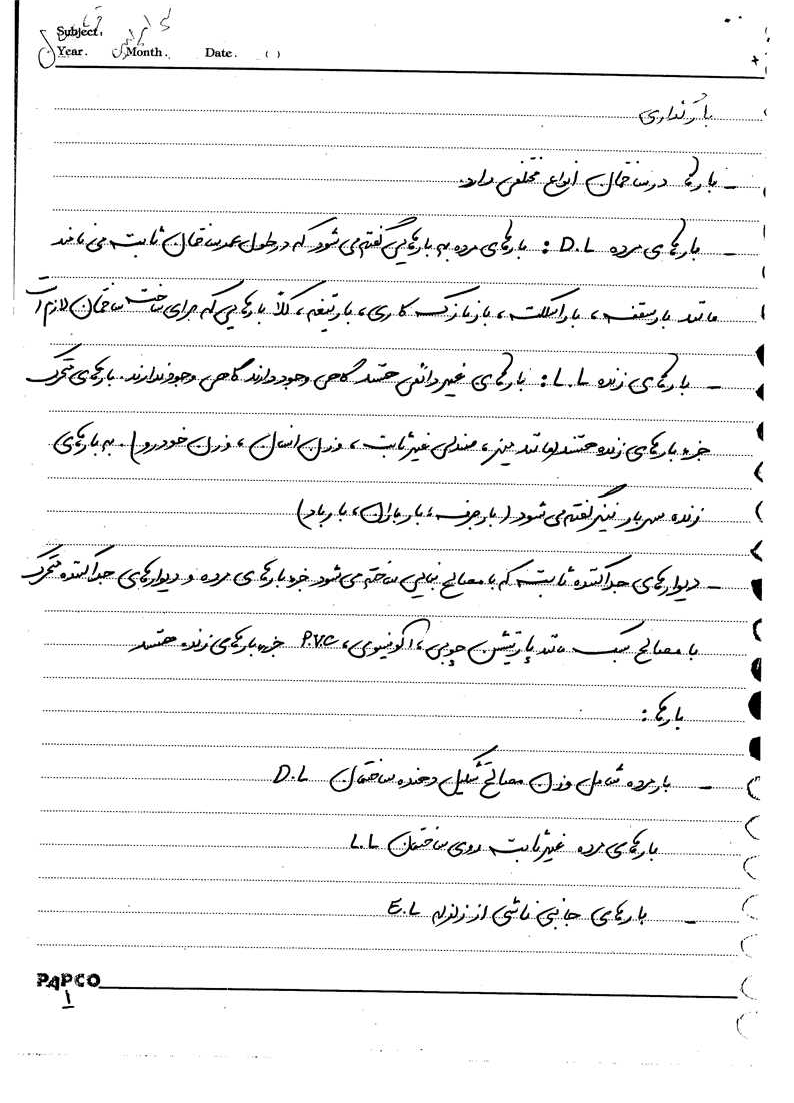 Subject:
Year. Month. Date. ( )
بارگذاری
- بارها در ساختمان انواع مختلفی دارد.
بارهای مرده D.L : بارهای مرده به بارهایی گفته می شود که در طول عمر ساختمان ثابت می مانند
مانند بار سقف، بار اسکلت، بار نازک کاری، بار تیغه، کلاً بارهایی که برای ساخت ساختمان لازم است
- بارهای زنده L.L : بارهای غیر دائمی هستند گاهی وجود دارند گاهی وجود ندارند. بارهای متحرک
جزء بارهای زنده هستند (مانند میز، صندلی غیر ثابت، وزن انسان، وزن خودرو). به بارهای
زنده سربار نیز گفته می شود (بار برف، بار باران، بار باد)
- دیوارهای جداکننده ثابت که با مصالح بنایی ساخته می شود جزء بارهای مرده و دیوارهای جداکننده متحرک
با مصالح سبک مانند پارتیشن چوبی، آلومنیومی، P.V.C جزء بارهای زنده هستند
بارها :
- بار مرده شامل وزن مصالح تشکیل دهنده ساختمان D.L
بارهای مرده غیر ثابت روی ساختمان L.L
- بارهای جانبی ناشی از زلزله E.L
PAPCO
۱